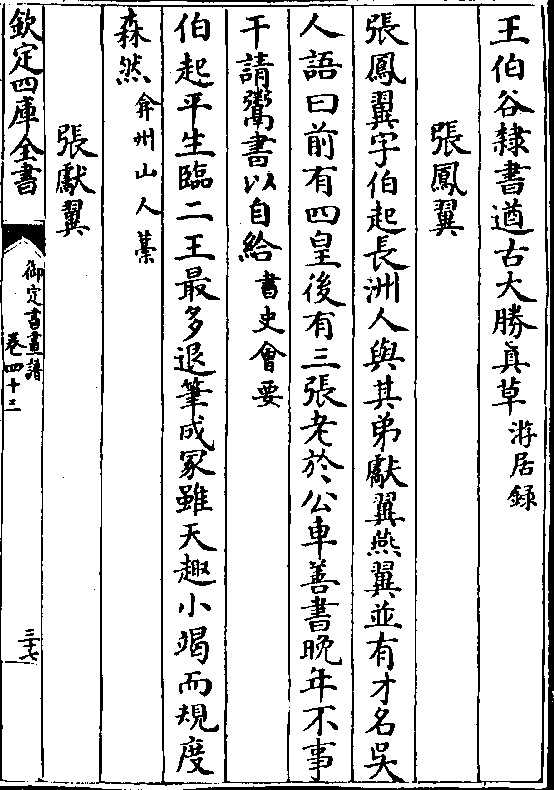 王伯谷隸書遒古大勝真草游居録
張鳳翼
張鳳翼字伯起長洲人與其弟獻翼燕翼並有才名吳
人語曰前有四皇後有三張老於公車善書晚年不事
干請鬻書以自給書史會要
伯起平生臨二王最多退筆成冢雖天趣小竭而規度
森然弇州山人藁
張獻翼
欽定四庫全書
御定書畫譜
卷四十三
三七